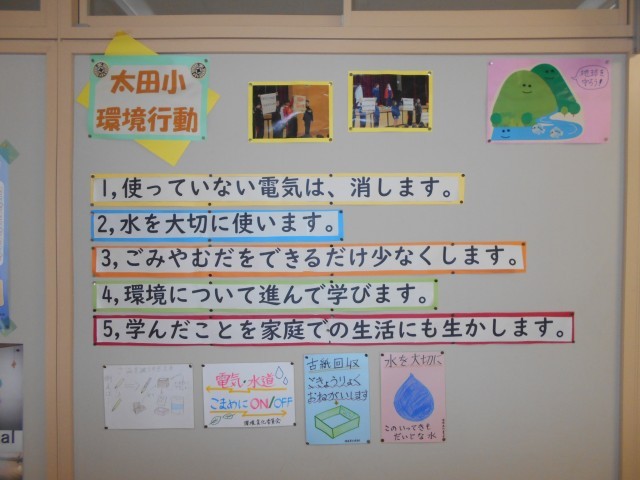 太田小
環境行動
地球を
守ろう!
1,使っていない電気は、消します。
2,水を大切に使います。
3,ごみやむだをできるだけ少なくします。
4,環境について進んで学びます。
5,学んだことを家庭での生活にも生かします。
電気・水道
こまめに ON/OFF
古紙回収
ごきょうりょく
おねがいします
水を大切に
このいってきも
だいじな水
al